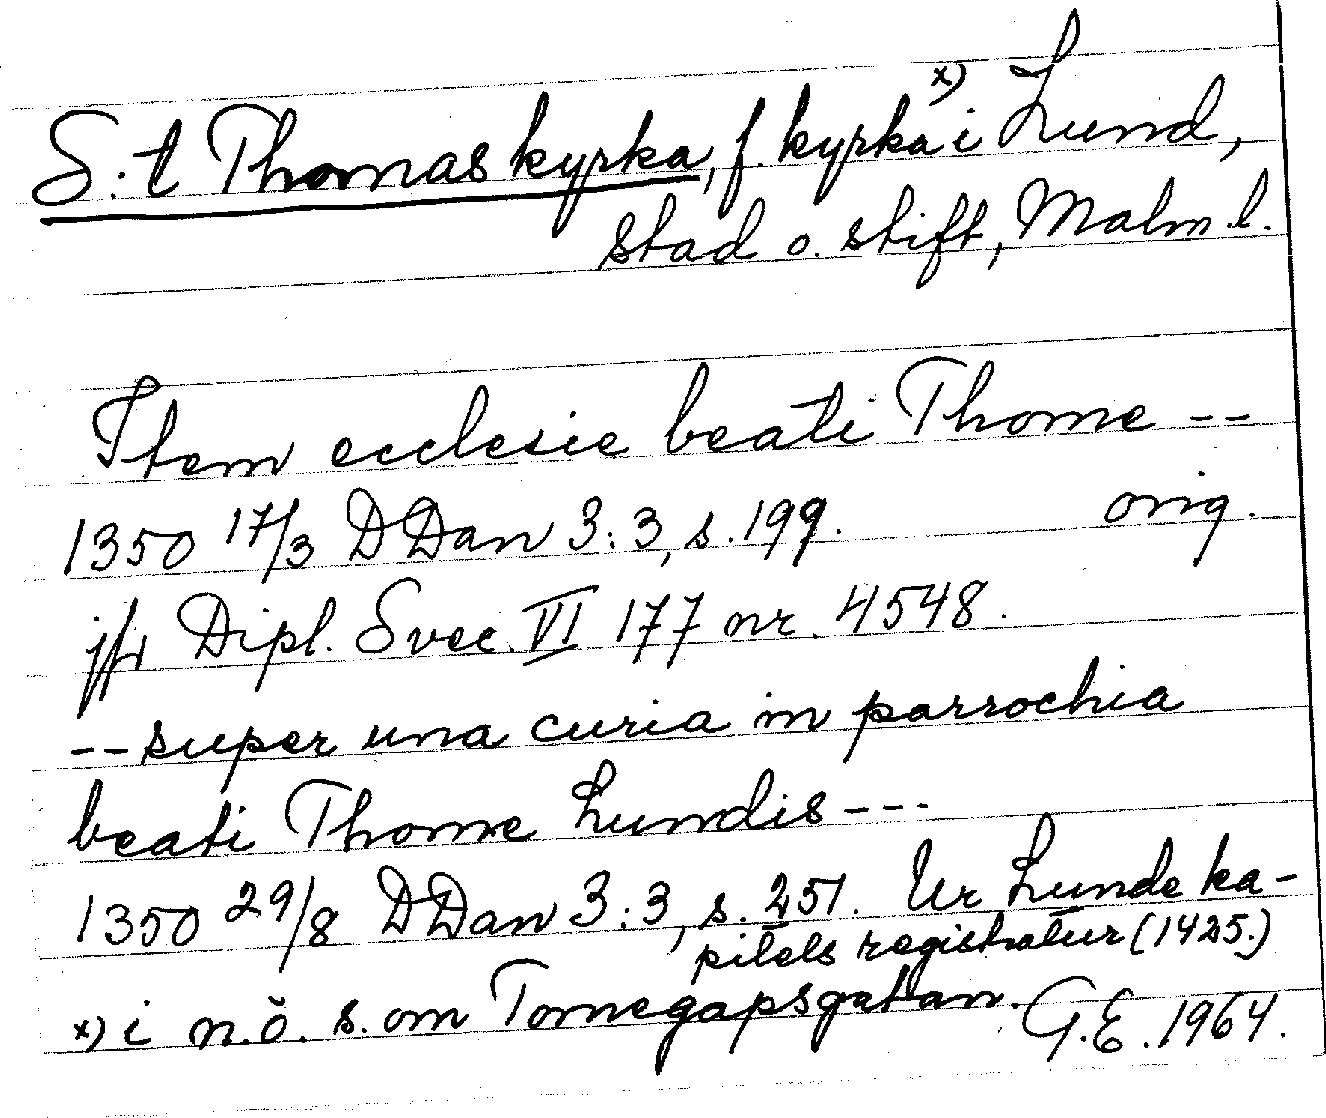 S:t Thomas kyrka, f. kyrka x) i Lund,
stad o. stift, Malm. l.
Item ecclesie beati Thome --
1350 17/3 DDan 3:3, s. 199. orig.
jfr Dipl. Svec. VI 177 nr. 4548.
-- super una curia in parrochia
beati Thome Lundis ---
1350 29/8 DDan 3:3, s. 251. Ur Lunde ka-
pitels registratur (1425.)
x) i n.ö. s. om Tomegapsgatan.
G.E. 1964.